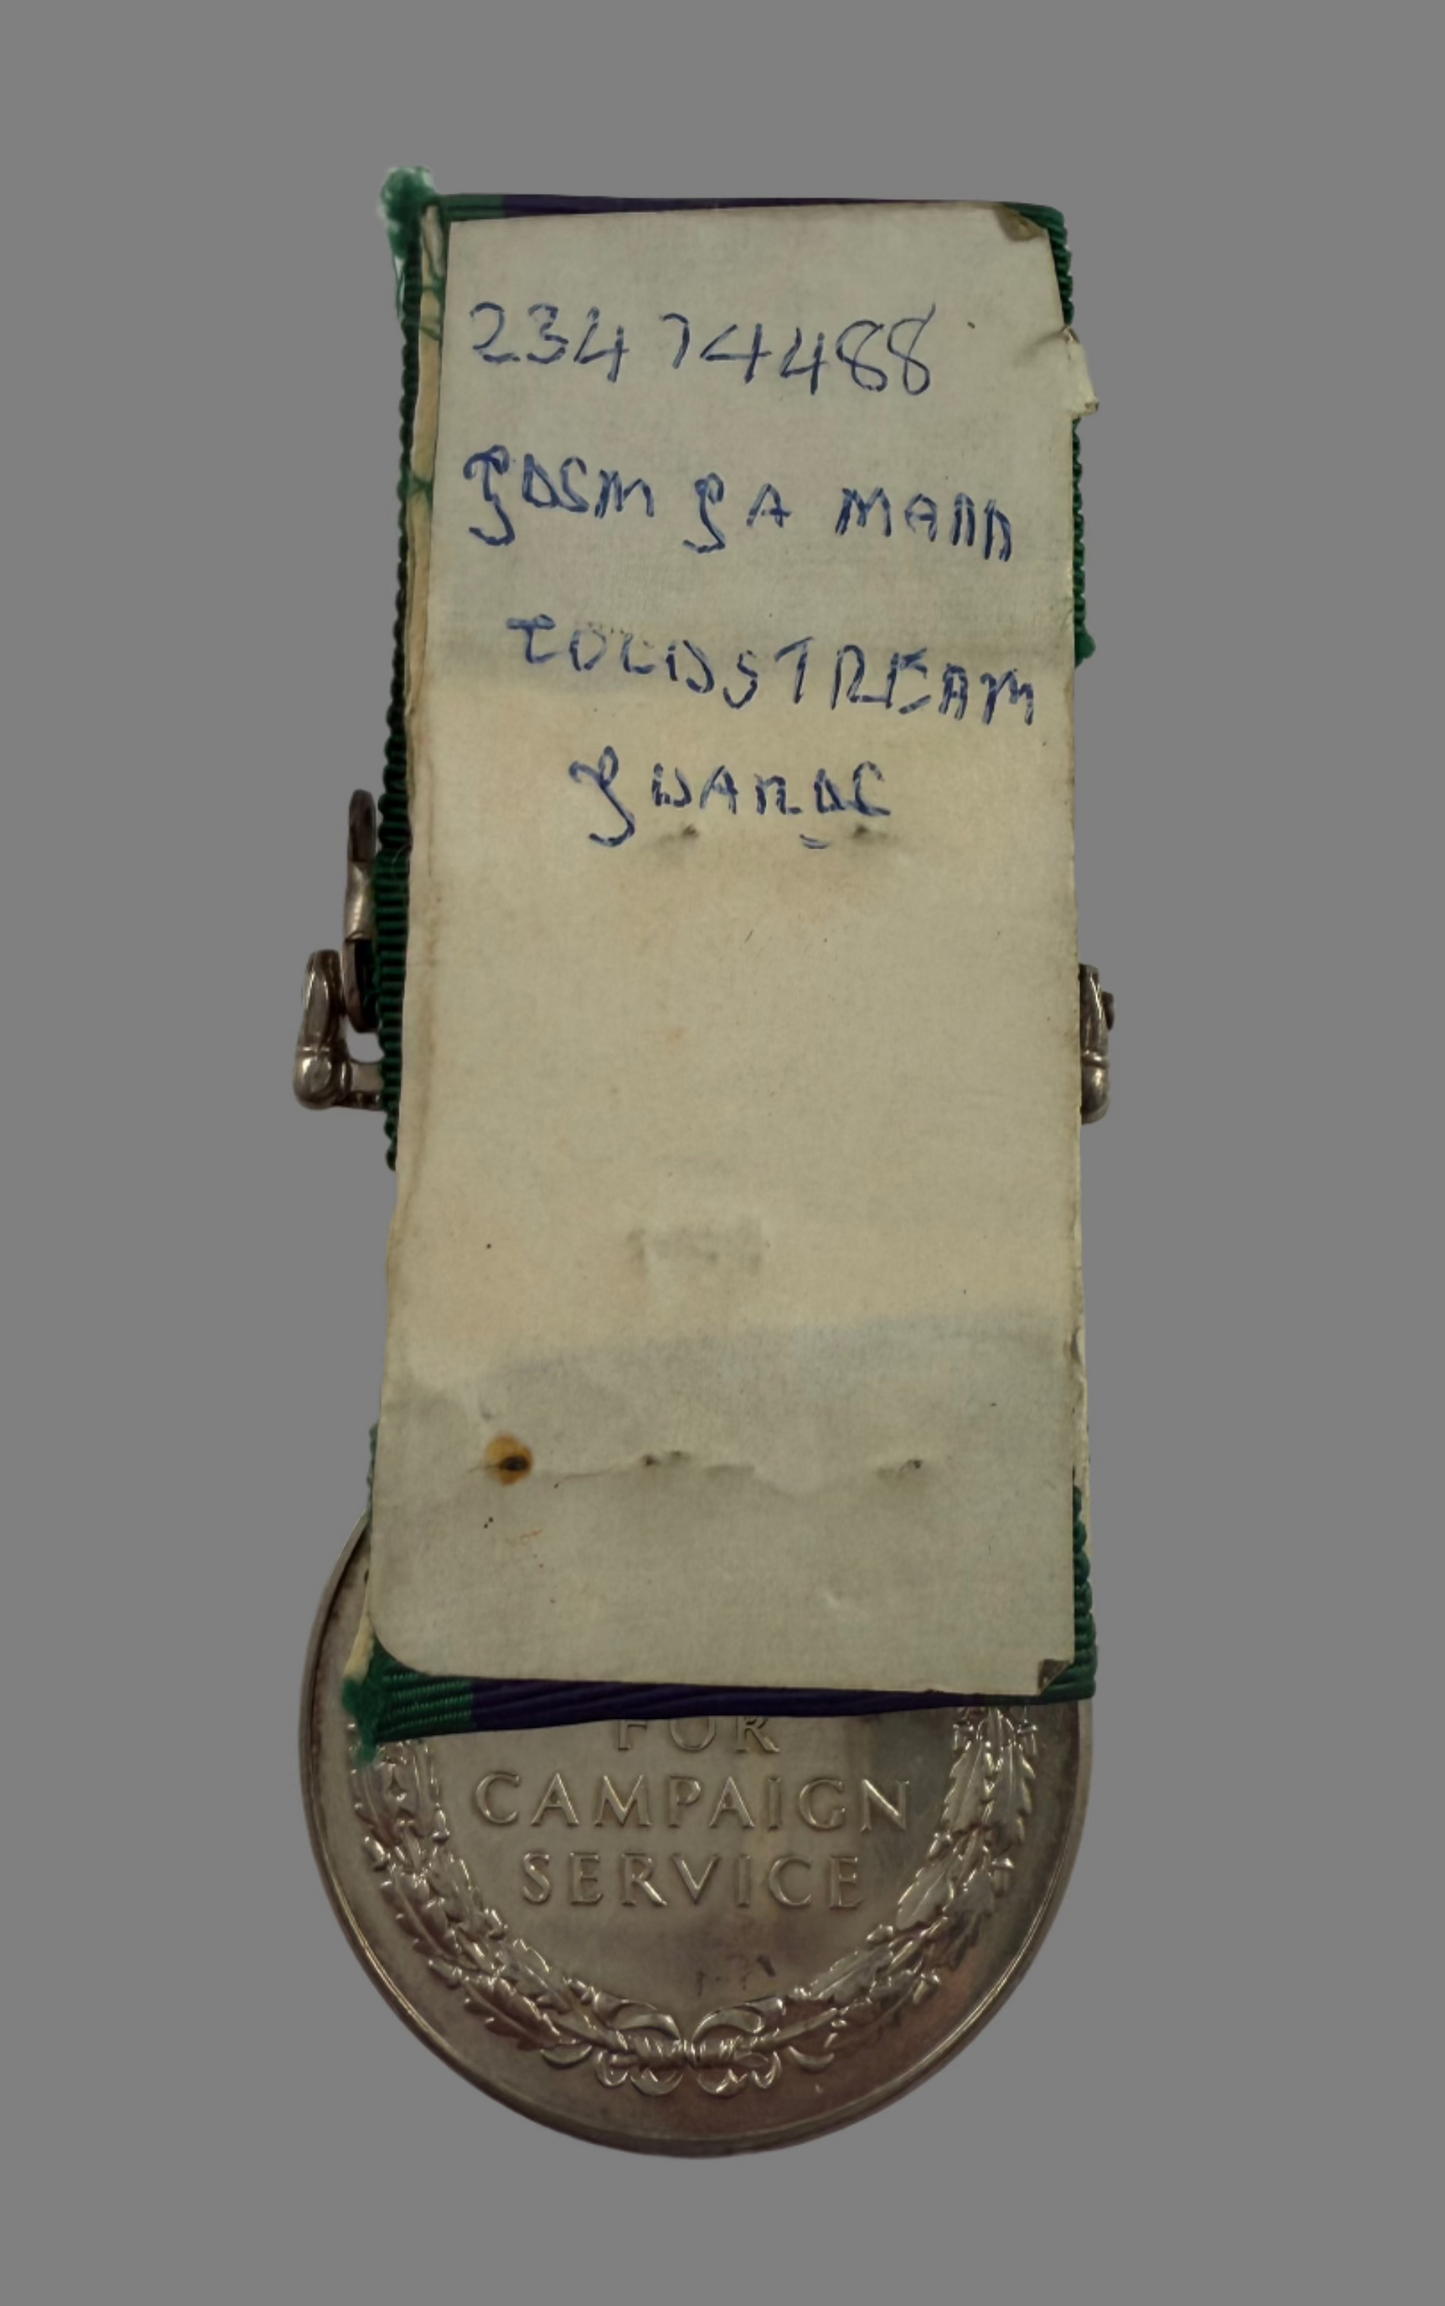 23474488
GDSM G A MANN
COLDSTREAM
GUARDS
FOR
CAMPAIGN
SERVICE